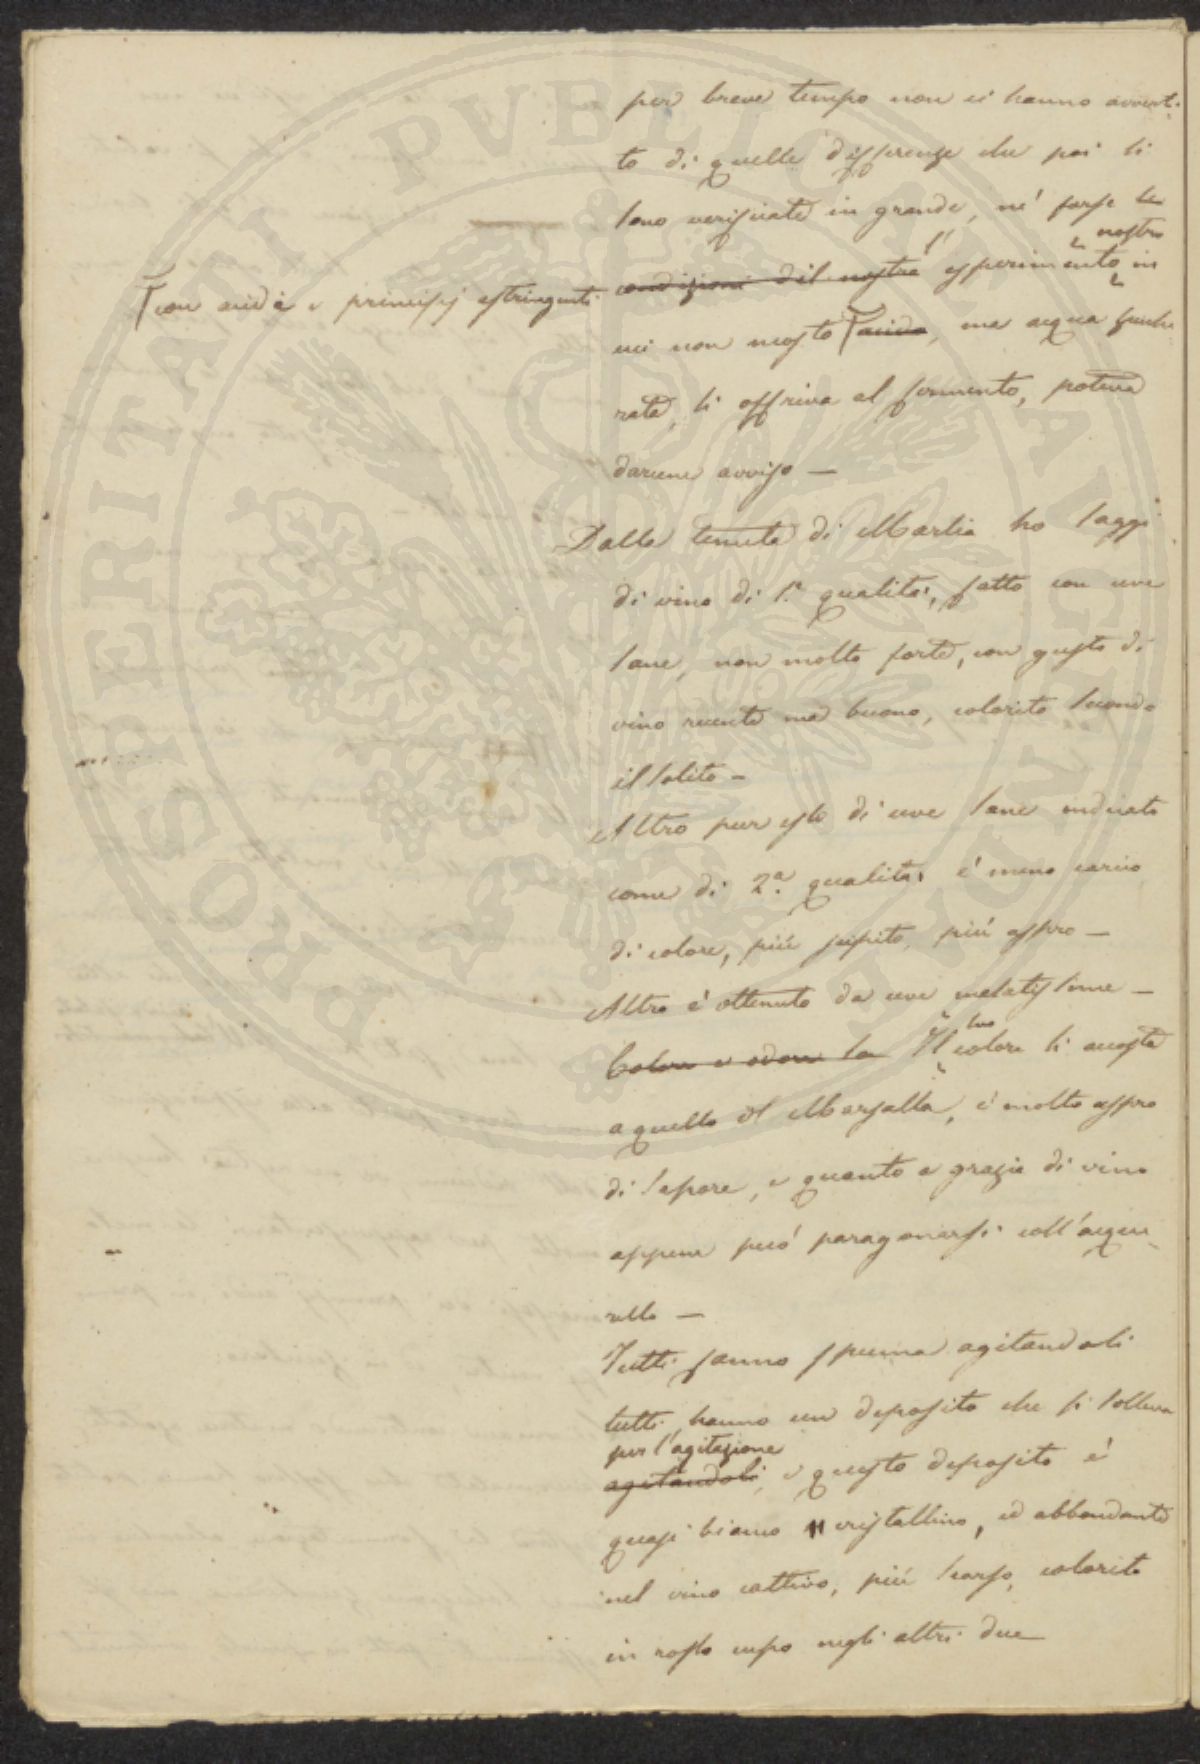 per breve tempo non ci hanno avverti-
to di quelle differenze che poi si
sono verificate in grande, né forse le
nostro
condizioni del nostro l' esperimento in
con acidi e principj astringenti
cui non mosto acido, ma acqua zuche
rata, si offriva al fermento, poteva
darcene avviso —
Dalla tenuta di Marlia ho saggi
di vino di 1.a qualità, fatto con uve
sane, non molto forte, con gusto di
vino recente ma buono, colorito secondo
il solito —
Altro pur esso di uve sane indicato
come di 2.a qualità è meno carico
di colore, più sipito, più aspro —
Altro è ottenuto da uve malatissime —
suo
Colore e odore la Il colore si accosta
a quello del Marsalla, è molto aspro
di sapore, e quanto a grazia di vino
appena può paragonarsi coll'acque-
rello —
Tutti fanno spuma agitandoli
tutti hanno un deposito che si solleva
per l'agitazione
agitandoli, e questo deposito è
quasi bianco cristallino, ed abbondante
nel vino cattivo, più scarso, colorito
in rosso cupo negli altri due
PROSPERITATI PVBLICAE AVGENDAE